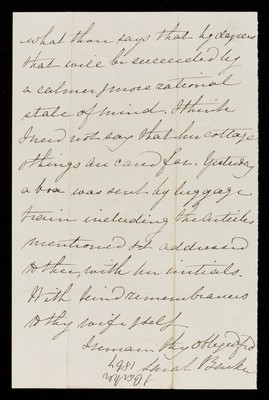 what thou says that by degrees
that will be succeeded by
a calmer, more rational
state of mind. I think
I need not say that her cottage
& things are cared for. Yesterday
a box was sent by luggage
train including the articles
mentioned & addressed
to thee, with her initials.
With kind remembrances
to thy wife & self
I remain thy obliged frd
Sarah Barker
Barker
1867